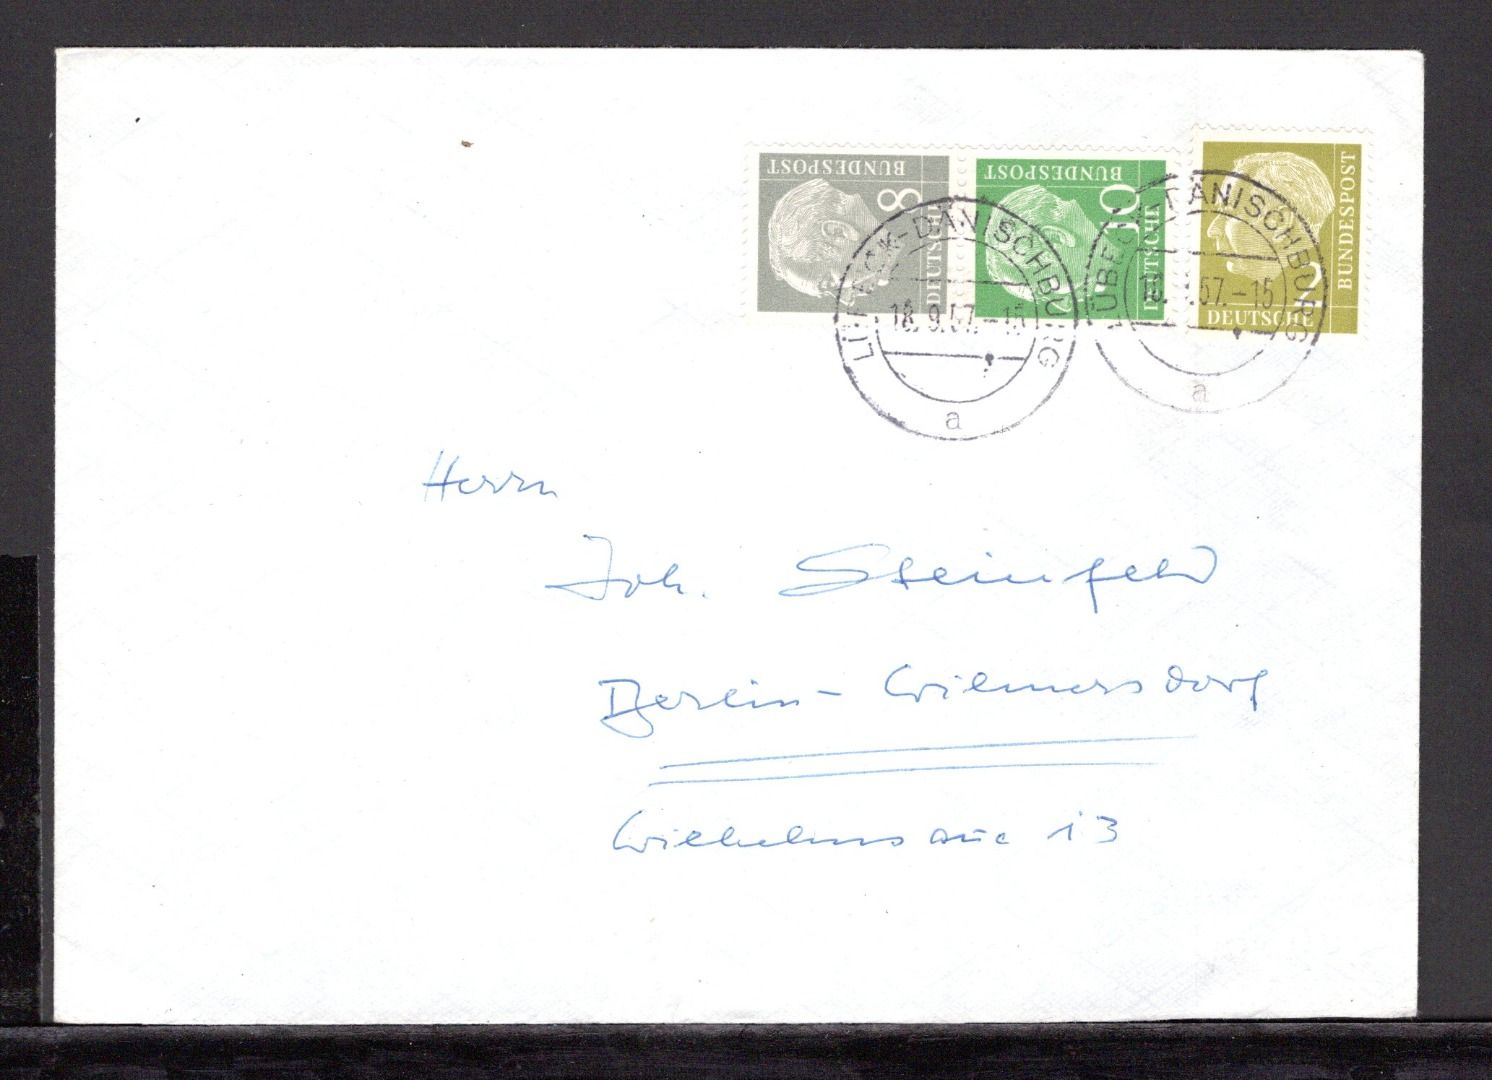 8
DEUTSCHE
BUNDESPOST
10
DEUTSCHE
BUNDESPOST
2
DEUTSCHE
BUNDESPOST
LÜBECK-DÄNISCHBURG
18.9.57.-15
a
LÜBECK-DÄNISCHBURG
18.9.57.-15
a
Herrn
Joh. Steinfeld
Berlin-Wilmersdorf
Wilhelmsaue 13